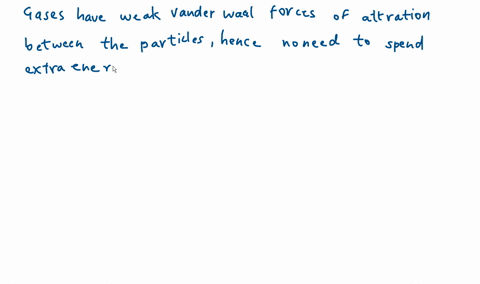 Gases have weak vander waal forces of attration
between the particles, hence no need to spend
extra ener